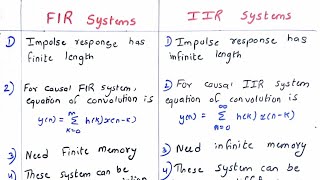 FIR Systems
1) Impulse response has
finite length
2) For causal FIR system,
equation of convolution is
y(n) = m Σ k=0 h(k) x(n-k)
3) Need Finite memory
4) These system can be
IIR Systems
1) Impulse response has
infinite length
2) For causal IIR system
equation of convolution is
y(n) = ∞ Σ k=0 h(k) x(n-k)
3) Need infinite memory
4) These system can be